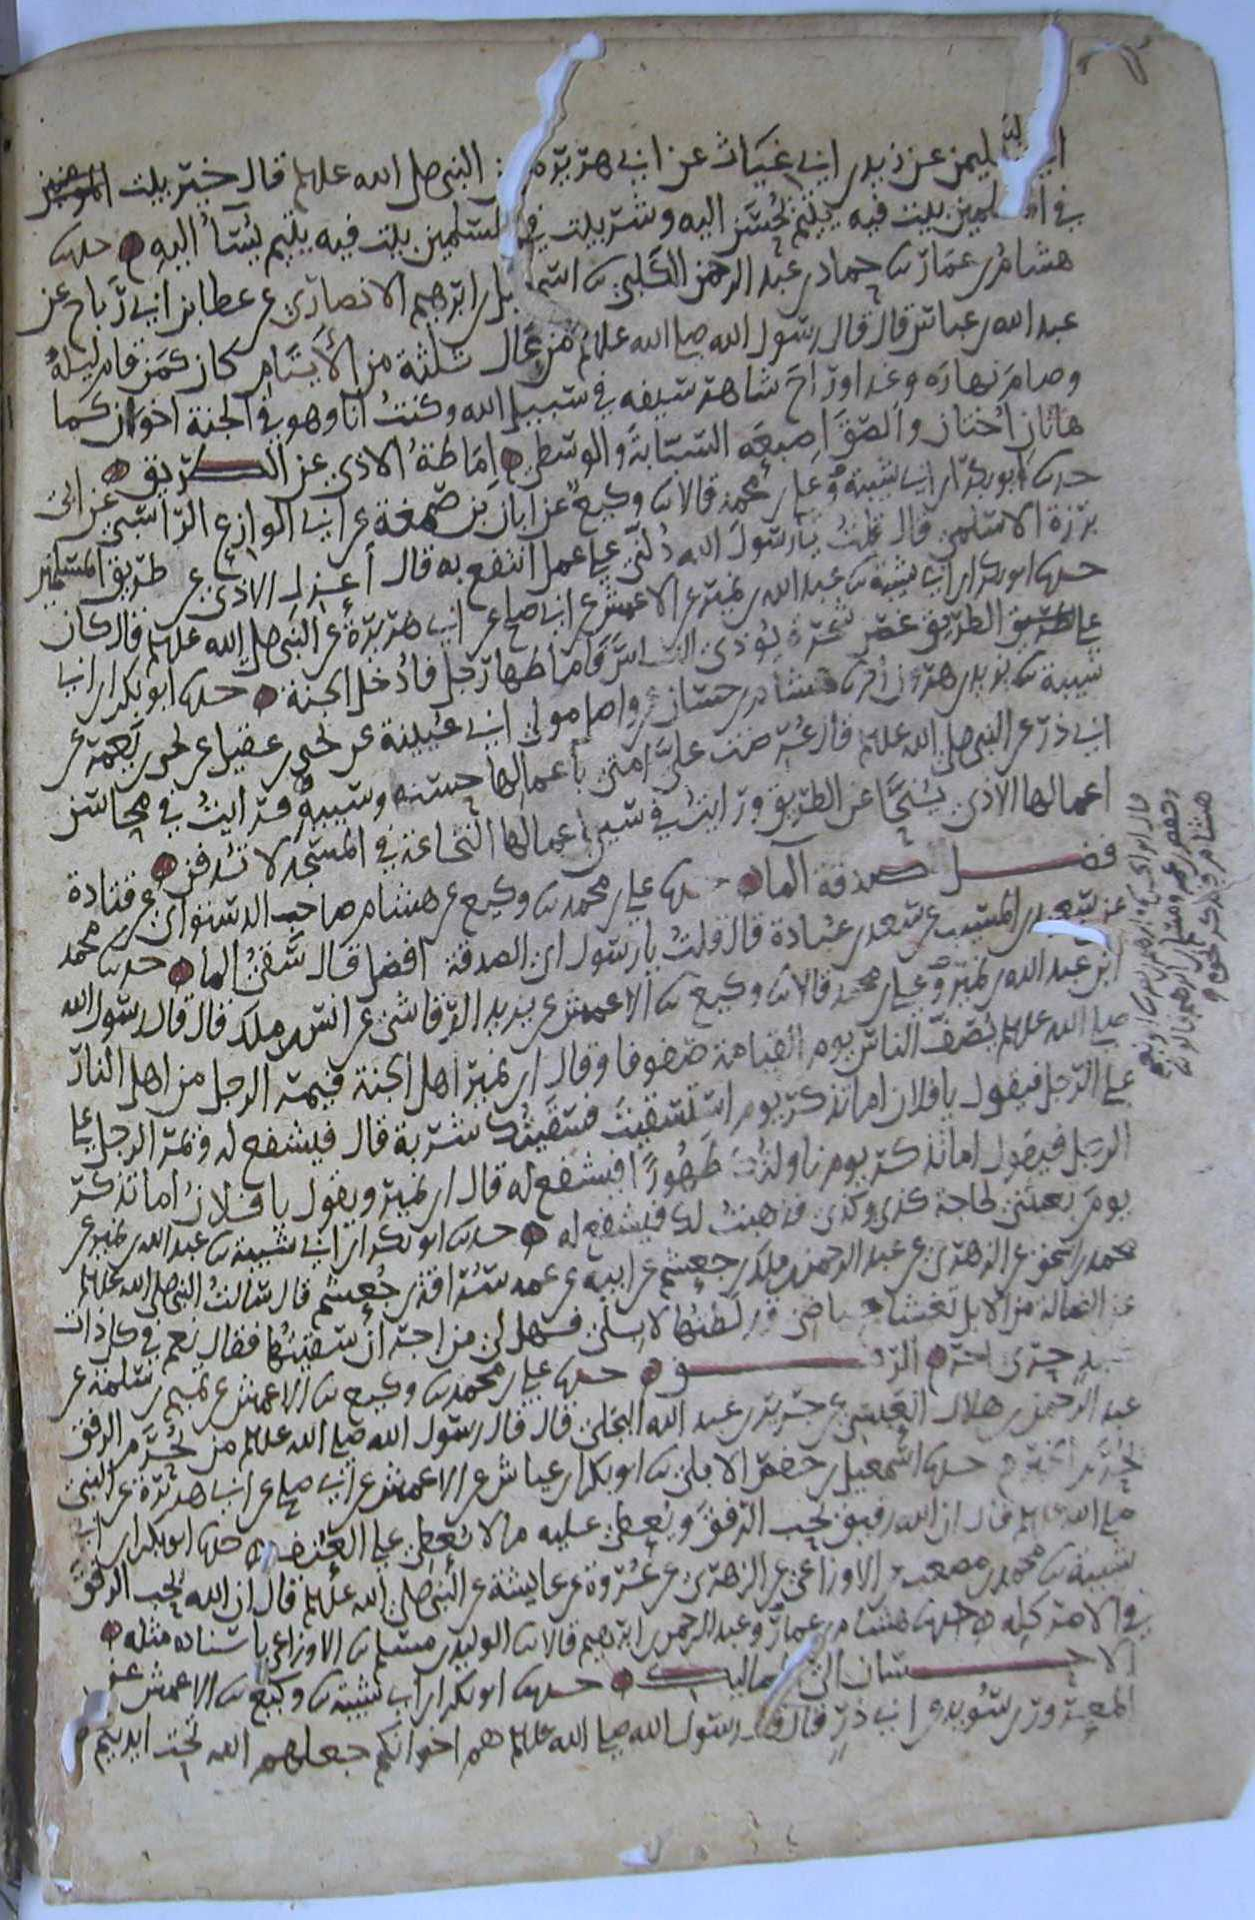 ابي سليمن عن زيد بن ابي غياث عن ابي هريرة عن النبي صلى الله عليه وسلم قال خير بيت
في المسلمين بيت فيه يتيم يُحسَن اليه وشر بيت في المسلمين بيت فيه يتيم يُسَآءُ اليه حدثنا
هشام بن عمار ثنا حماد بن عبد الرحمن الكلبي ثنا اسمعيل بن ابرهيم الانصاري عن عطا بن ابي رَبَاح عن
عبد الله بن عباس قال قال رسول الله صلى الله عليه وسلم مَن عَال ثلثة من الأَيتَام كان كمَن قام ليلهُ
وصامَ نهاره وغدا وراحَ شاهرَ سيفه في سبيل الله وكنتُ انا وهو في الجنة اخوان كما
هاتان اُختان والصَقَ اِصبعَيه السبَّابةَ والوسطى اِمَاطَةُ الاذى عن الطريق
حدثنا ابو بكر بن ابي شيبة وعلي بن محمد قالا ثنا وكيع عن ابان بن صَمعَة عن ابي الوازع الراسبي عن ابي
برزة الاسلمي قال قلتُ يا رسول الله دُلَّني على عمل انتفع به قال اَعزِل الاذى عن طريق المسلمين
حدثنا ابو بكر بن ابي شيبة ثنا عبد الله بن نمير عن الاعمش عن ابي صالح عن ابي هريرة عن النبي صلى الله عليه وسلم قال كان
على الطريق غصن شجرة يُوذي الناسَ فَاَماطها رجل فادُخل الجنة حدثنا ابو بكر بن ابي
شيبة ثنا يزيد بن هرون انا هشام بن حسان عن واصل مولى ابي عُيينة عن يحيى بن عقيل عن يحيى بن يَعمَر عن
ابي ذر عن النبي صلى الله عليه وسلم قال عُرضت عليَّ امتي باَعمالها حسنه وسيئه فرايتُ في محاسن
اعمالها الاذى يُنَحَّا عن الطريق ورايتُ في سيئ اعمالها النخاعة في المسجد لا تُدفن
فضل صدقة الما حدثنا علي بن محمد ثنا وكيع عن هشام صاحب الدستوائي عن قتادة
عن سعيد بن المسيب عن سعد بن عبادة قال قلتُ يا رسول اي الصدقة افضل قال سَقيُ الما حدثنا محمد
ابن عبد الله بن نمير وعلي بن محمد قالا ثنا وكيع ثنا الاعمش عن يزيد الرقاشي عن انس بن ملك قال قال رسول الله
صلى الله عليه وسلم يُصَفُّ الناس يوم القيامة صفوفا وقال ابن نمير اهل الجنة فيمر الرجل من اهل النار
على الرجل فيقول يا فلان اما تذكر يوم استسقيتَ فسَقيتُكَ شربة قال فيشفع له ويمر الرجل على
الرجل فيقول اما تذكر يوم ناولتُكَ طَهُورًا فيشفع له قال ابن نمير ويقول يا فلانُ اما تذكر
يومَ بعثتني لحاجة كذى وكذى فذهبتُ لك فيشفع له حدثنا ابو بكر بن ابي شيبة ثنا عبد الله بن نمير ثنا
محمد بن اسحق عن الزهري عن عبد الرحمن بن ملك بن جعشم عن ابيه عن عمه سُراقة بن جُعشم قال سالتُ النبي صلى الله عليه وسلم
عن الضالة من الابل تَغشا حياضي قد لُطتُها لابِلي فهل لي من اجر اِن سَقيتُها فقال نعم في كل ذات
كبدٍ حرّى اجر الرفق حدثنا علي بن محمد ثنا وكيع ثنا الاعمش عن تميم بن سلمة عن
عبد الرحمن بن هلال العبسي عن جرير بن عبد الله البجلي قال قال رسول الله صلى الله عليه وسلم من يُحرَم الرفق
يُحرَم الخير حدثنا اسمعيل بن حفص الابلي ثنا ابو بكر بن عياش عن الاعمش عن ابي صالح عن ابي هريرة عن النبي
صلى الله عليه وسلم قال ان الله رفيق يحب الرفقَ ويُعطي عليه ما لا يُعطي على العُنف حدثنا ابو بكر بن ابي
شيبة ثنا محمد بن مصعب عن الاوزاعي عن الزهري عن عُروة عن عايشة عن النبي صلى الله عليه وسلم قال ان الله يحب الرفق
في الامر كله حدثنا هشام بن عمار وعبد الرحمن بن ابرهيم قالا ثنا الوليد بن مسلم ثنا الاوزاعي باسناده مثله
الاحسان الى المماليك حدثنا ابو بكر بن ابي شيبة ثنا وكيع ثنا الاعمش عن
المعرور بن سُويد عن ابي ذرٍ قال قال رسول الله صلى الله عليه وسلم هم اخوانكم جعلهم الله تحت ايديكم